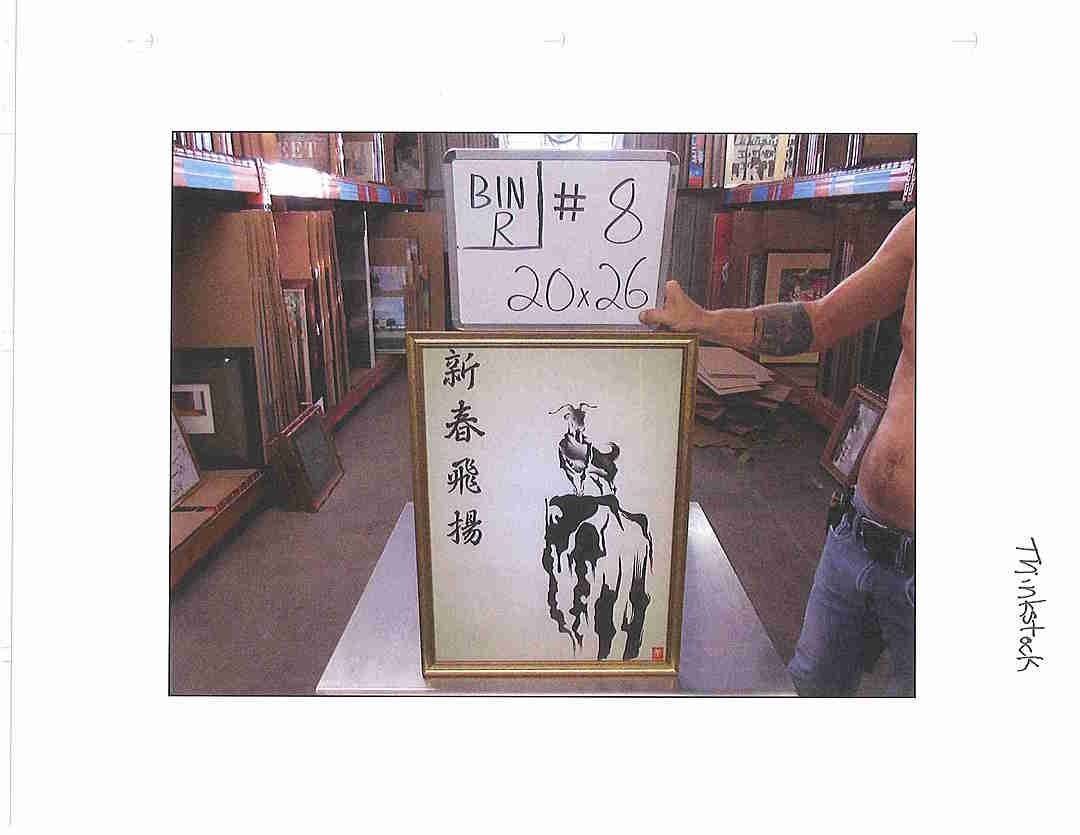 BIN # 8
R
20x26
新
春
飛
揚
Thinkstock